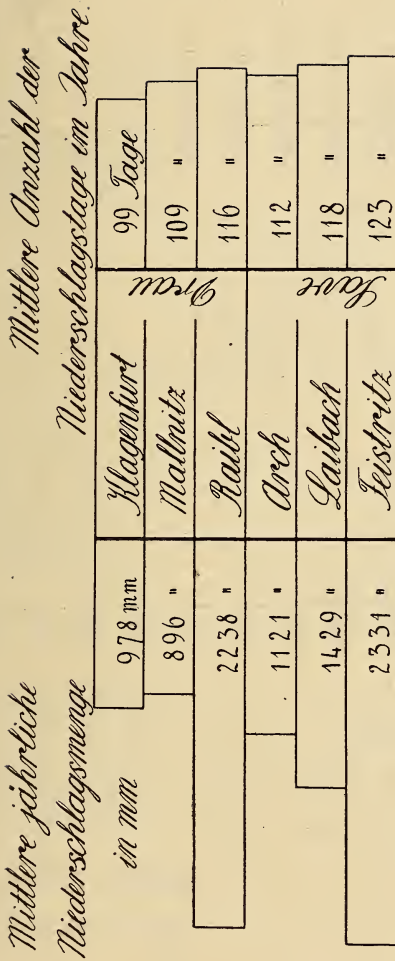 Mittlere jährliche
Niederschlagsmenge
in mm
Mittlere Anzahl der
Niederschlagstage im Jahre.
978 mm Klagenfurt 99 Tage
896 " Mallnitz 109 "
2238 " Raibl 116 "
Drau
1121 " Arch 112 "
1429 " Laibach 118 "
2331 " Feistritz 123 "
Save